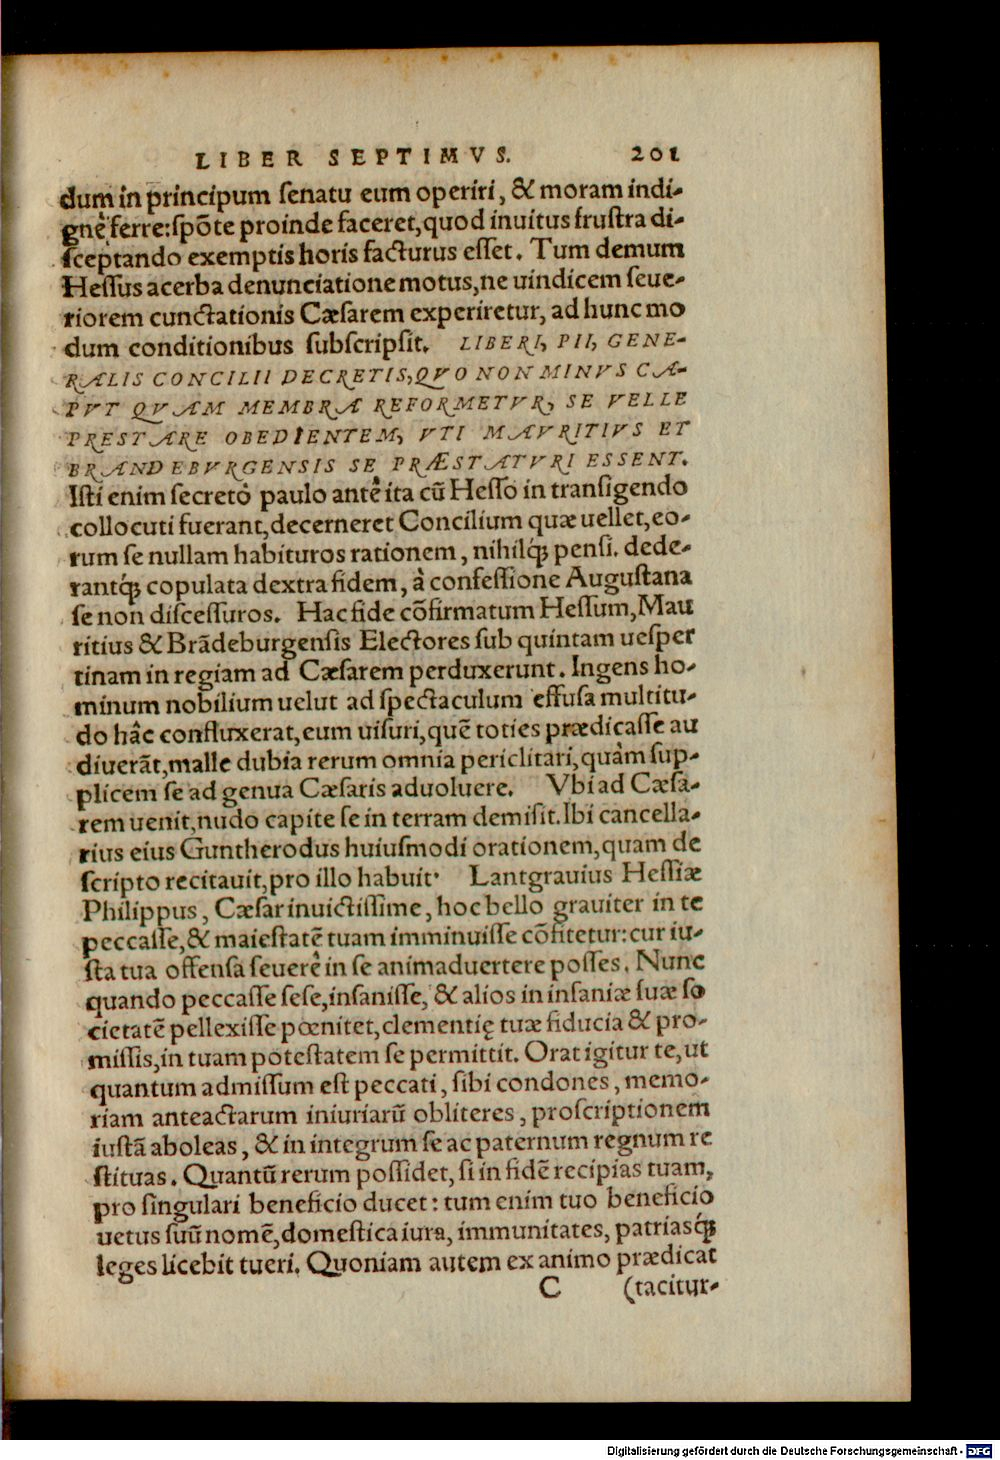 LIBER SEPTIMVS. 201
dum in principum senatu eum operiri, & moram indi-
gnè ferre: spõte proinde faceret, quod inuitus frustra di-
sceptando exemptis horis facturus esset. Tum demum
Hessus acerba denunciatione motus, ne uindicem seue-
riorem cunctationis Cæsarem experiretur, ad hunc mo
dum conditionibus subscripsit. LIBERI, PII, GENE-
RALIS CONCILII DECRETIS, QVO NON MINVS CA-
PVT QVAM MEMBRA REFORMETVR, SE VELLE
PRESTARE OBEDIENTEM, VTI MAVRITIVS ET
BRANDEBVRGENSIS SE PRÆSTATVRI ESSENT.
Isti enim secretò paulo antè ita cũ Hesso in transigendo
collocuti fuerant, decerneret Concilium quæ uellet, eo-
rum se nullam habituros rationem, nihilq́; pensi. dede-
rantq́; copulata dextra fidem, à confessione Augustana
se non discessuros. Hac fide cõfirmatum Hessum, Mau
ritius & Brãdeburgensis Electores sub quintam uesper
tinam in regiam ad Cæsarem perduxerunt. Ingens ho-
minum nobilium uelut ad spectaculum effusa multitu-
do hâc confluxerat, eum uisuri, quẽ toties prædicasse au
diuerãt, malle dubia rerum omnia periclitari, quàm sup-
plicem se ad genua Cæsaris aduoluere. Vbi ad Cæsa-
rem uenit, nudo capite se in terram demisit. Ibi cancella-
rius eius Guntherodus huiusmodi orationem, quam de
scripto recitauit, pro illo habuit. Lantgrauius Hessiæ
Philippus, Cæsar inuictissime, hoc bello grauiter in te
peccasse, & maiestatẽ tuam imminuisse cõfitetur: cur iu-
sta tua offensa seuerè in se animaduertere posses. Nunc
quando peccasse sese, insanisse, & alios in insaniæ suæ so
cietatẽ pellexisse pœnitet, clementię tuæ fiducia & pro-
missis, in tuam potestatem se permittit. Orat igitur te, ut
quantum admissum est peccati, sibi condones, memo-
riam anteactarum iniuriarũ obliteres, proscriptionem
iustã aboleas, & in integrum se ac paternum regnum re
stituas. Quantũ rerum possidet, si in fidẽ recipias tuam,
pro singulari beneficio ducet: tum enim tuo beneficio
uetus suũ nomẽ, domestica iura, immunitates, patriasq́;
leges licebit tueri. Quoniam autem ex animo prædicat
C (tacitur-
Digitalisierung gefördert durch die Deutsche Forschungsgemeinschaft - DFG